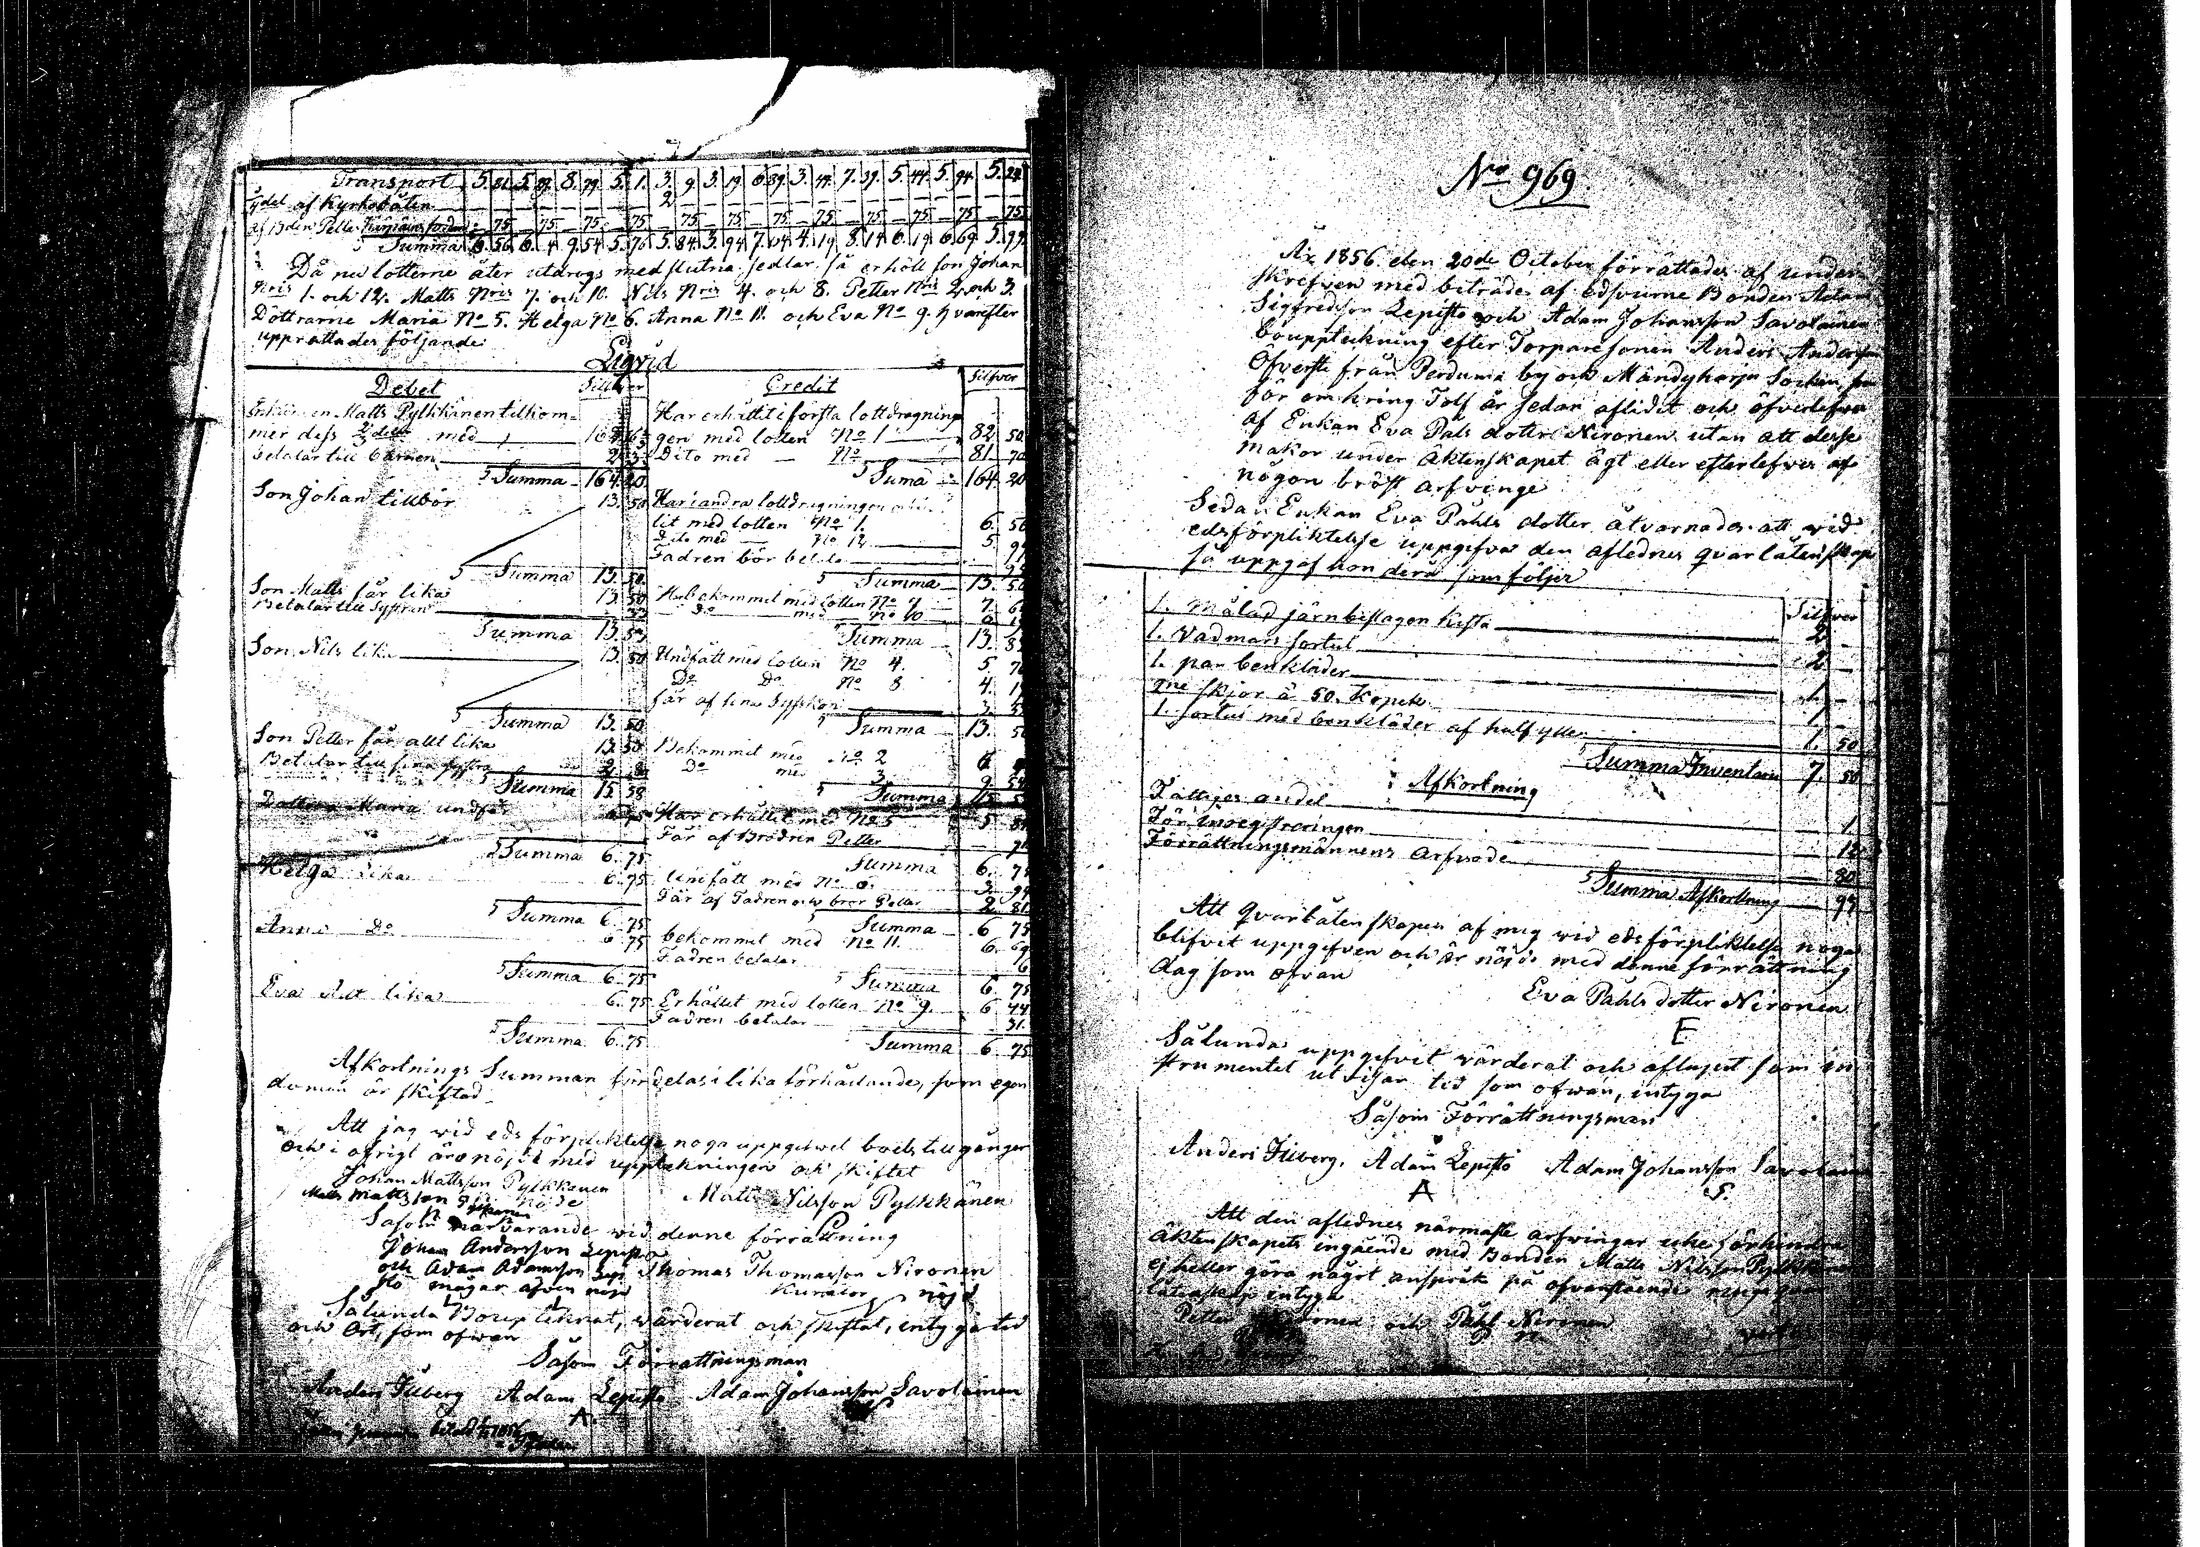 Transport 5. 81. 5. 29. 8. 79. 5. 1. 3. 9. 3. 19. 6. 39. 3. 44. 7. 39. 5. 44. 5. 94. 5. 24
del af Kyrkobåten
af Bden Petter 75 75 75 75 75 75 75 75 75 75 75 75
Summa 6. 56. 6. 4. 9. 54. 5. 76. 5. 84. 3. 94. 7. 14. 4. 19. 8. 14. 6. 19. 6. 69. 5. 99
Då nu lotterne åter utdrogs med slutna sedlar så erhöll son Johan
Nris 1. och 12. Matts Nris 7. och 10. Nils Nris 4. och 8. Petter Nris 2. och 3.
Dottrarne Maria No 5. Helga No 6. Anna No 11. och Eva No 9. hvarefter
upprättades följande
Liqvid
Debet Silfver Credit Silfver
Enkian en Matts Pylkkänen tilkom- Har erhållit i första lottdragnin-
mer dess del med gen med lotten No 1 82 50
betalar till barnen Dito med No 81 70
Summa 164 20 Suma 164 20
Son Johan tillbör 13. 50 Har i andra lottdragningen
lit med lotten No 1. 6. 56
Dito med No 12 5. 99
Fadren bör betala
Summa 13. 50 Summa 13. 50
Son Matts får lika 13 50 Har bekommit med lotten No 7 7
Betalar till systrar 33 Do med No 10 6
Summa 13. 83 Summa 13. 83
Son Nils lika 13. 50 Undfått med lotten No 4. 5 76
Do Do No 8 4. 19
får af sina Syskon 3. 55
Summa 13 50 Summa 13. 50
Son Petter får allt lika 13 50 Bekommit med No 2 6
Betalar till sina systrar 2 Do med 3 9 54
Summa 15 58 Summa 15 58
Dottern Maria undfår 6 75 Har erhållet med No 5 5 84
Får af Brodren Petter
Summa 6. 75 Summa 6. 75
Helga lika 6. 75 Undfått med No 6. 3. 94
Får af Fadren och bror Petter 2 81
Summa 6. 75 Summa 6 75
Anna Do 6 75 bekommit med No 11. 6. 69
Fadren betalar 6
Summa 6. 75 Summa 6. 75
Eva Allt lika 6. 75 Erhållet med lotten No 9. 6 44
Fadren betalar 31.
Summa 6. 75 Summa 6 75
Afkortnings Summan fördelas i lika förhållande, som egen
domen är skiftad
Att jag wid eds förpliktelse noga uppgifwet boets tillgånger
och i öfrigt äro nöjde med upptekningen och skiftet
Johan Mattsson Pylkkänen
Matts Mattsson nöjde Matts Nilsson Pylkkänen
Såsom närvarande wid denne förrättning
Johan Andersson Lepistö
och Adam Adamsson Lepi Thomas Thomasson Nironen
stö mågar äfven nöjd Kurator nöjd
Sålunda Boupteknat, wärderat och skiftat, intyga tid
och Ort, som ofwan
Såsom Förrättningsman
Anders Fliberg Adam Lepistö Adam Johansson Savolainen
A.
No 969
År 1856. den 20de October förrättades af under-
skrefven med biträde af edsvurne Bonden Adam
Sigfredsson Lepistö och Adam Johansson Savolainen
bouppteckning efter Torparesonen Anders Andersson
Öfverste från Perduma by och Mändyharju Socken, som
för omkring Tolf år sedan aflidit och öfverlefves
af Enkan Eva Påls dotter Nironen utan att desse
makor under äktenskapet ägt eller efterlefves af
någon bröst arfvinge
Sedan Enkan Eva Påhls dotter åtvarnades att vid
edsförpliktelse uppgifva den aflednes qvarlåtenskap
så uppgaf hon derå som följer
Silfver
1. Målad järnbeslagen kista 2 —
1. Vadmars sortut 2 —
1. par benkläder 1. —
2ne skjor à 50. Kopek 1 —
1. sortut med benkläder af half ylle 1. 50
Summa Inventarie 7. 50
Afkortning
Fattiges andel 1
För inregistreringen 12
Förrättningsmännens Arfvode 80
Summa Afkortning 93
Att qvarlåtenskapen af mig wid edsförpliktelse noga
blifvit uppgifven och är nöjd med denne förrättning
dag som ofvan
Eva Påhls dotter Nironen
E
Sålunda uppgifvit värderat och aflupit som in-
strumentet utvisar tid som ofwan, intyga
Såsom Förrättningsman
Anders Fliberg. Adam Lepistö Adam Johansson Savolainen
A S.
Att den aflednes närmaste arfwingar icke förhindra
äktenskapets ingående med Bonden Matts Nilsson Pylkkänen
ej heller göra något anspråk på ofvanstående
låtenskap intyga
Petter och Påhl Nironen
P N